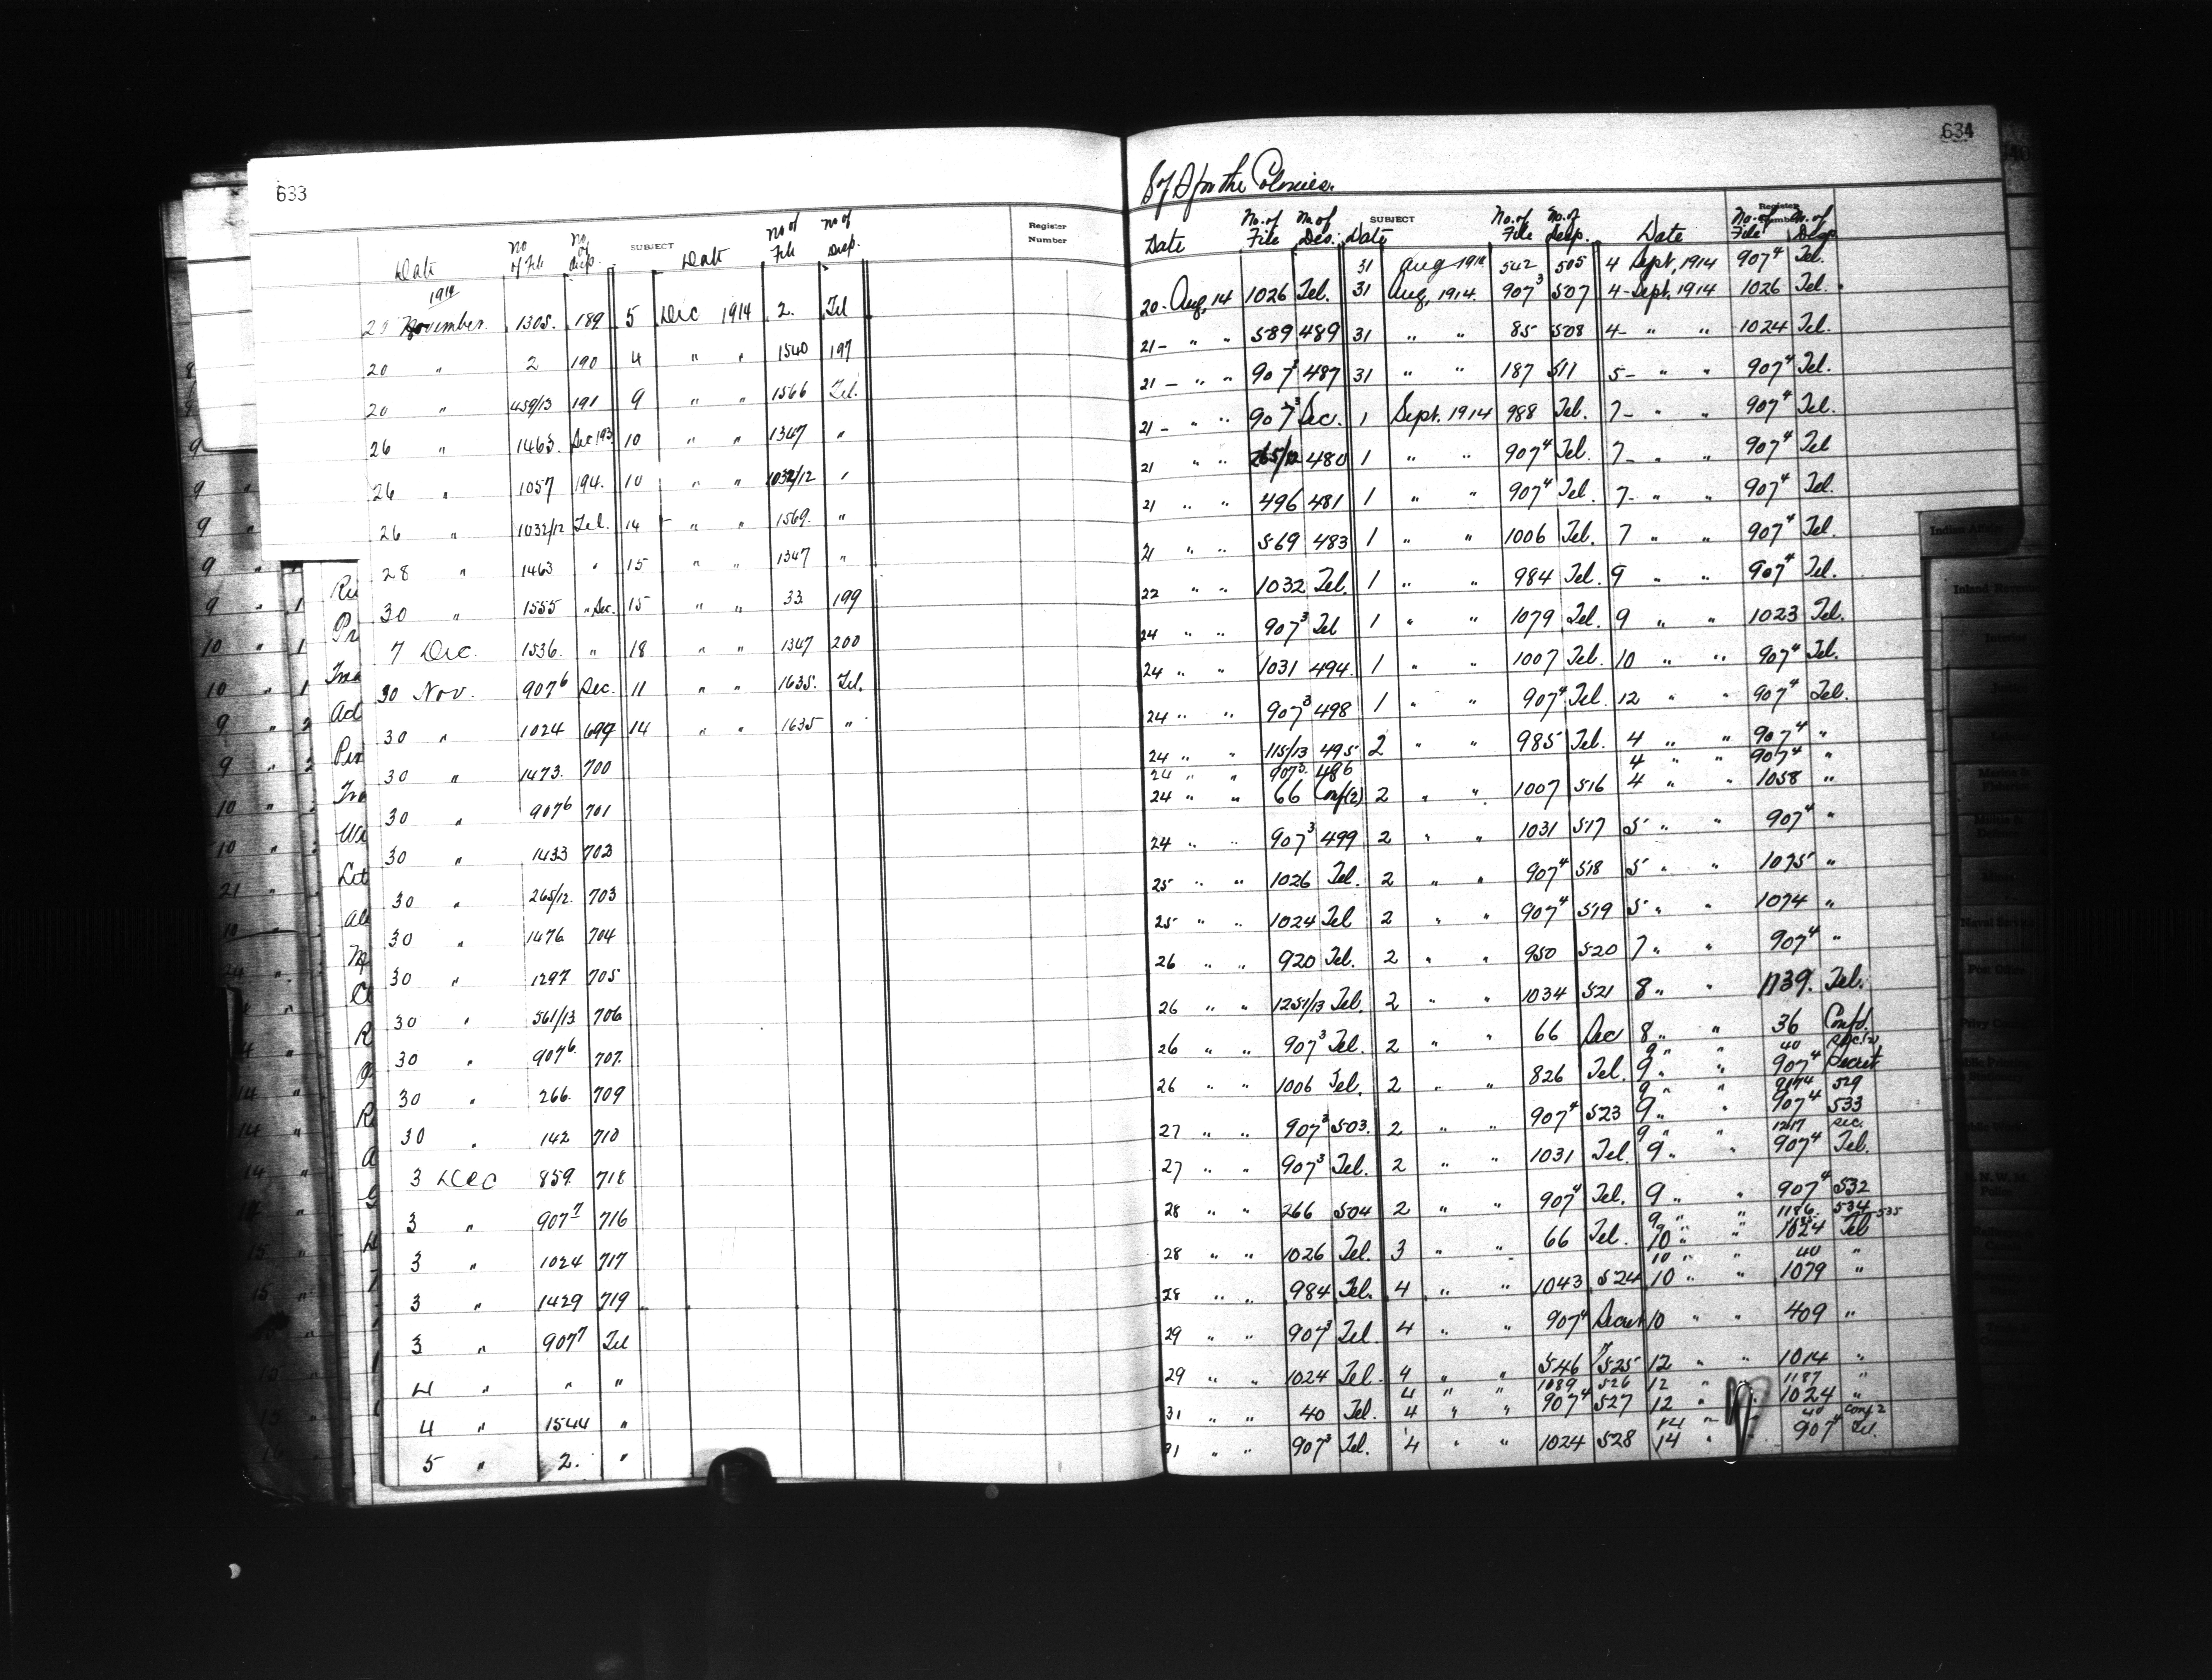 633
Register
Number
SUBJECT
Date No of File No. of desp. Date No of File No of Desp.
1914
20 November. 1305. 189 5 Dec 1914 2. Tel
20 " 2 190 4 " " 1540 197
20 " 459/13 191 9 " " 1566 Tel.
26 " 1463. Sec 193 10 " " 1347 "
26 " 1057 194. 10 " " 1032/12 "
26 " 1032/12 Tel. 14 " " 1569. "
28 " 1463 " 15 " " 1347 "
30 " 1555 " Sec. 15 " " 33 199
7 Dec. 1536. " 18 " " 1347 200
30 Nov. 907⁶ Sec. 11 " " 1635. Tel.
30 " 1024 699 14 " " 1635 "
30 " 1473. 700
30 " 907⁶ 701
30 " 1433 702
30 " 265/12. 703
30 " 1476 704
30 " 1297 705
30 " 561/13 706
30 " 907⁶. 707.
30 " 266. 709
30 " 142 710
3 Dec 859. 718
3 " 907⁷ 716
3 " 1024 717
3 " 1429 719
3 " 907⁷ Tel
4 " " "
4 " 1544 "
5 " 2. "
634
S of S for the Colonies.
SUBJECT
Register
Number
Date No. of File No of Des. Date No. of File No. of desp. Date No. of File No. of Desp
31 Aug 1914 542 505 4 Sept, 1914 907⁴ Tel.
20 - Aug, 14 1026 Tel. 31 Aug, 1914. 907³ 507 4 - Sept. 1914 1026 Tel.
21 - " " 589 489 31 " " 85 508 4 - " " 1024 Tel.
21 - " " 907³ 487 31 " " 187 511 5 - " " 907⁴ Tel.
21 - " " 907³ Sec. 1 Sept. 1914 988 Tel. 7 - " " 907⁴ Tel.
21 " " 265/12 480 1 " " 907⁴ Tel. 7 - " " 907⁴ Tel
21 " " 496 481 1 " " 907⁴ Tel. 7 - " " 907⁴ Tel.
21 " " 569 483 1 " " 1006 Tel. 7 " " 907⁴ Tel.
22 " " 1032 Tel. 1 " " 984 Tel. 9 " " 907⁴ Tel.
24 " " 907³ Tel 1 " " 1079 Tel. 9 " " 1023 Tel.
24 " " 1031 494. 1 " " 1007 Tel. 10 " " 907⁴ Tel.
24 " " 907³ 498 1 " " 907⁴ Tel. 12 " " 907⁴ Tel.
24 " " 115/13 495 2 " " 985 Tel. 4 " " 907⁴ "
24 " " 907³. 486 4 " " 907⁴ "
24 " " 66 Conf(2) 2 " " 1007 516 4 " " 1058 "
24 " " 907³ 499 2 " " 1031 517 5 " " 907⁴ "
25 " " 1026 Tel. 2 " " 907⁴ 518 5 " " 1075 "
25 " " 1024 Tel 2 " " 907⁴ 519 5 " " 1074 "
26 " " 920 Tel. 2 " " 950 520 7 " " 907⁴ "
26 " " 1251/13 Tel. 2 " " 1034 521 8 " " 1139. Tel.
26 " " 907³ Tel. 2 " " 66 Sec 8 " " 36 Confd.
9 " " 40
26 " " 1006 Tel. 2 " " 826 Tel. 9 " " 907⁴ Secret
9 " " 529
27 " " 907³ 503. 2 " " 907⁴ 523 9 " " 907⁴ 533
9 " " 1217 Sec.
27 " " 907³ Tel. 2 " " 1031 Tel. 9 " " 907⁴ Tel.
28 " " 266 504 2 " " 907⁴ Tel. 9 " " 907⁴ 532
9 " " 1186. 534-535
28 " " 1026 Tel. 3 " " 66 Tel. 10 " " 1024 Tel
10 " " 40 "
28 " " 984 Tel. 4 " " 1043 524 10 " " 1079 "
29 " " 907³ Tel. 4 " " 907⁴ Secret 10 " " 409 "
29 " " 1024 Tel. 4 " " 546 525 12 " " 1014 "
4 " " 1089 526 12 " 1187 "
31 " " 40 Tel. 4 " " 907⁴ 527 12 " 1024 "
14 " 40 Conf 2
31 " " 907³ Tel. 4 " " 1024 528 14 " 907⁴ Tel.
Indian Affairs
Inland Revenue
Interior
Marine &
Fisheries
Mines
Naval Service
Post Office